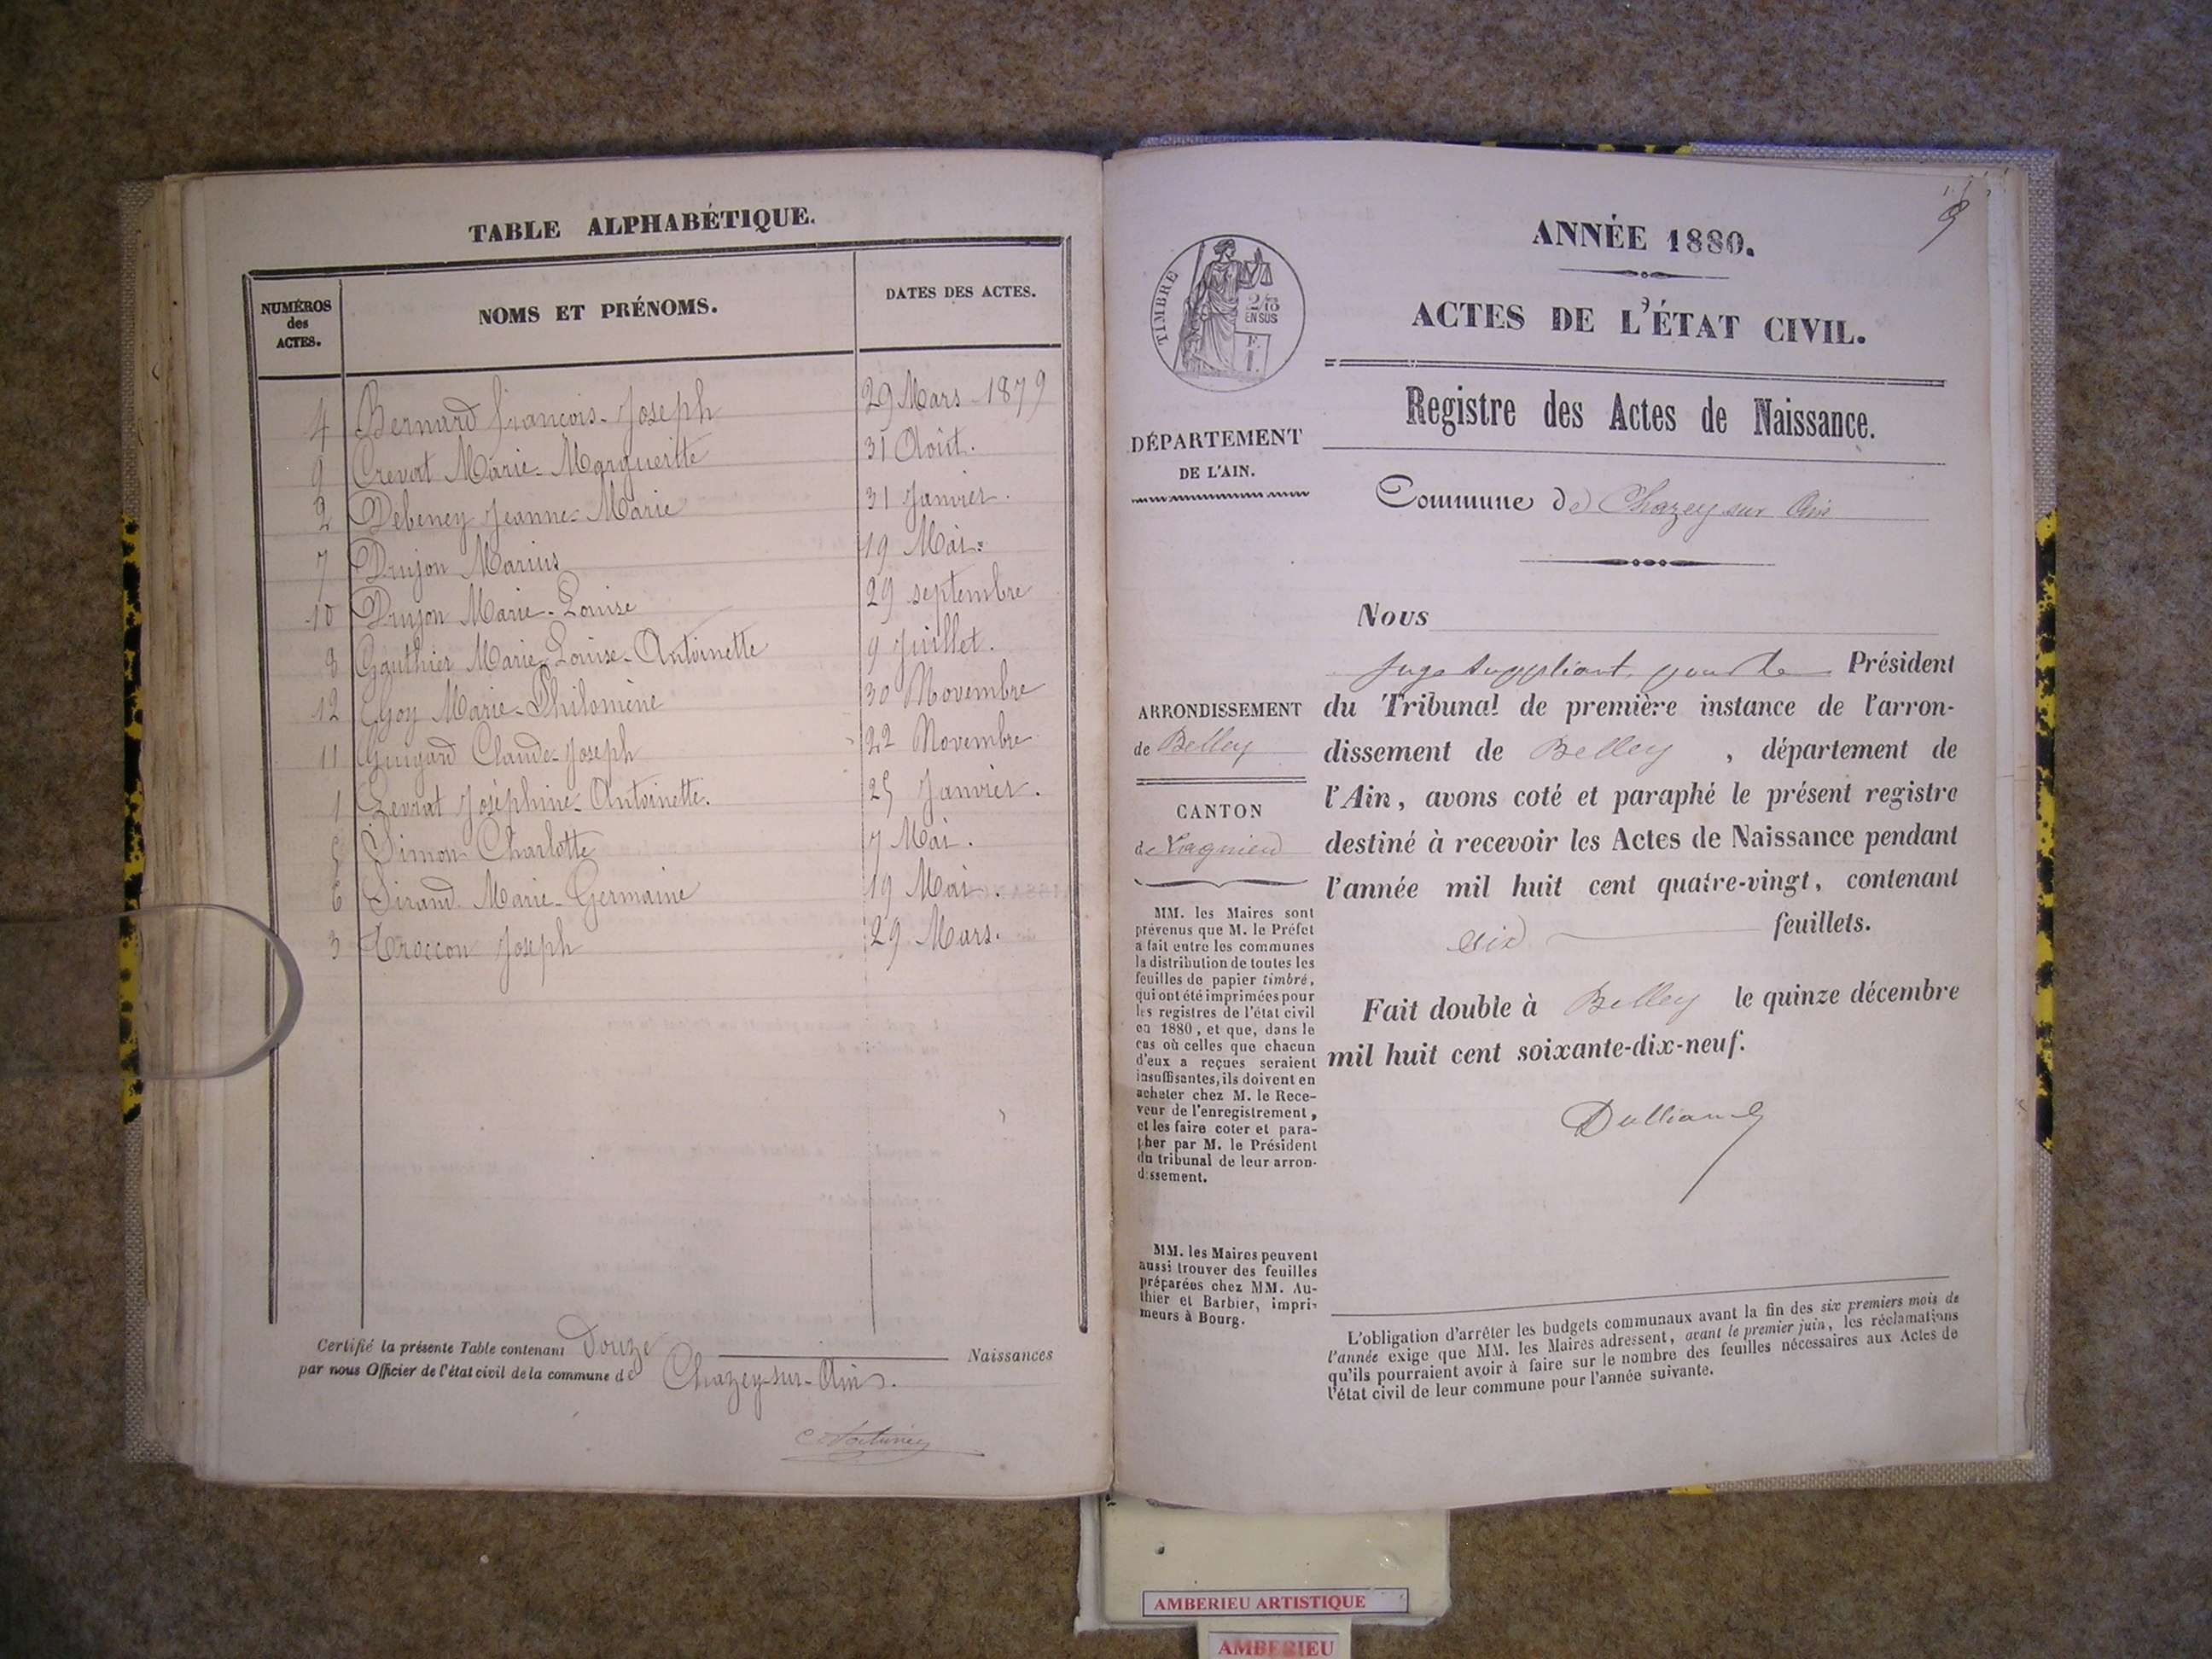 TABLE ALPHABÉTIQUE.
NUMÉROS
des
ACTES.
NOMS ET PRÉNOMS.
DATES DES ACTES.
4 Bernard François-Joseph 29 Mars 1879
9 Crevat Marie-Marguerite 31 Août.
2 Debeney Jeanne-Marie 31 Janvier.
7 Drujon Marius 19 Mai.
10 Drujon Marie-Louise 29 septembre
8 Gauthier Marie-Louise-Antoinette 9 Juillet.
12 Goy Marie-Philomène 30 Novembre
11 Guigard Claude-Joseph 22 Novembre
1 Levrat Joséphine-Antoinette. 25 Janvier.
5 Simon Charlotte 7 Mai.
6 Sirand Marie-Germaine 19 Mai.
3 Troccon Joseph 29 Mars.
Certifié la présente Table contenant Douze Naissances
par nous Officier de l'état civil de la commune de Chazey-sur-Ain.
ANNÉE 1880.
ACTES DE L'ÉTAT CIVIL.
Registre des Actes de Naissance.
Commune de Chazey sur Ain
TIMBRE
2/10
EN SUS
DÉPARTEMENT
DE L'AIN.
ARRONDISSEMENT
de Belley
CANTON
de Lagnieu
MM. les Maires sont
prévenus que M. le Préfet
a fait entre les communes
la distribution de toutes les
feuilles de papier timbré,
qui ont été imprimées pour
les registres de l'état civil
en 1880, et que, dans le
cas où celles que chacun
d'eux a reçues seraient
insuffisantes, ils doivent en
acheter chez M. le Rece-
veur de l'enregistrement,
et les faire coter et para-
pher par M. le Président
du tribunal de leur arron-
dissement.
MM. les Maires peuvent
aussi trouver des feuilles
préparées chez MM. Au-
thier et Barbier, impri-
meurs à Bourg.
Nous
Juge suppléant, pour le Président
du Tribunal de première instance de l'arron-
dissement de Belley, département de
l'Ain, avons coté et paraphé le présent registre
destiné à recevoir les Actes de Naissance pendant
l'année mil huit cent quatre-vingt, contenant
six feuillets.
Fait double à Belley le quinze décembre
mil huit cent soixante-dix-neuf.
L'obligation d'arrêter les budgets communaux avant la fin des six premiers mois de
l'année exige que MM. les Maires adressent, avant le premier juin, les réclamations
qu'ils pourraient avoir à faire sur le nombre des feuilles nécessaires aux Actes de
l'état civil de leur commune pour l'année suivante.
AMBERIEU ARTISTIQUE
AMBERIEU